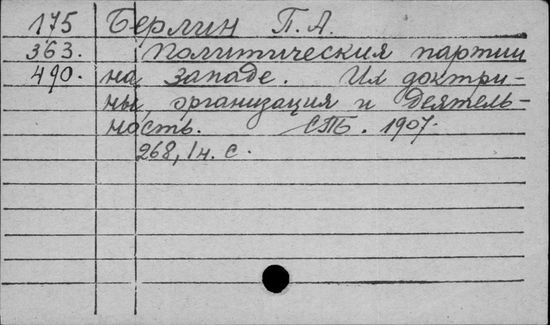 175 Берлин П. А.
363. Политическия партии
490. на западе. Их доктри-
ны, организация и деятель-
ность. СПБ. 1907.
268, 1н. с.